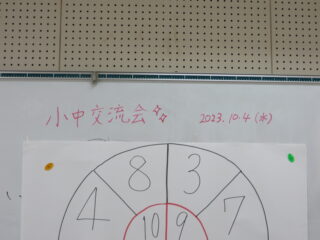 小中交流会 2023.10.4(水)
8 3
4 7
10 9